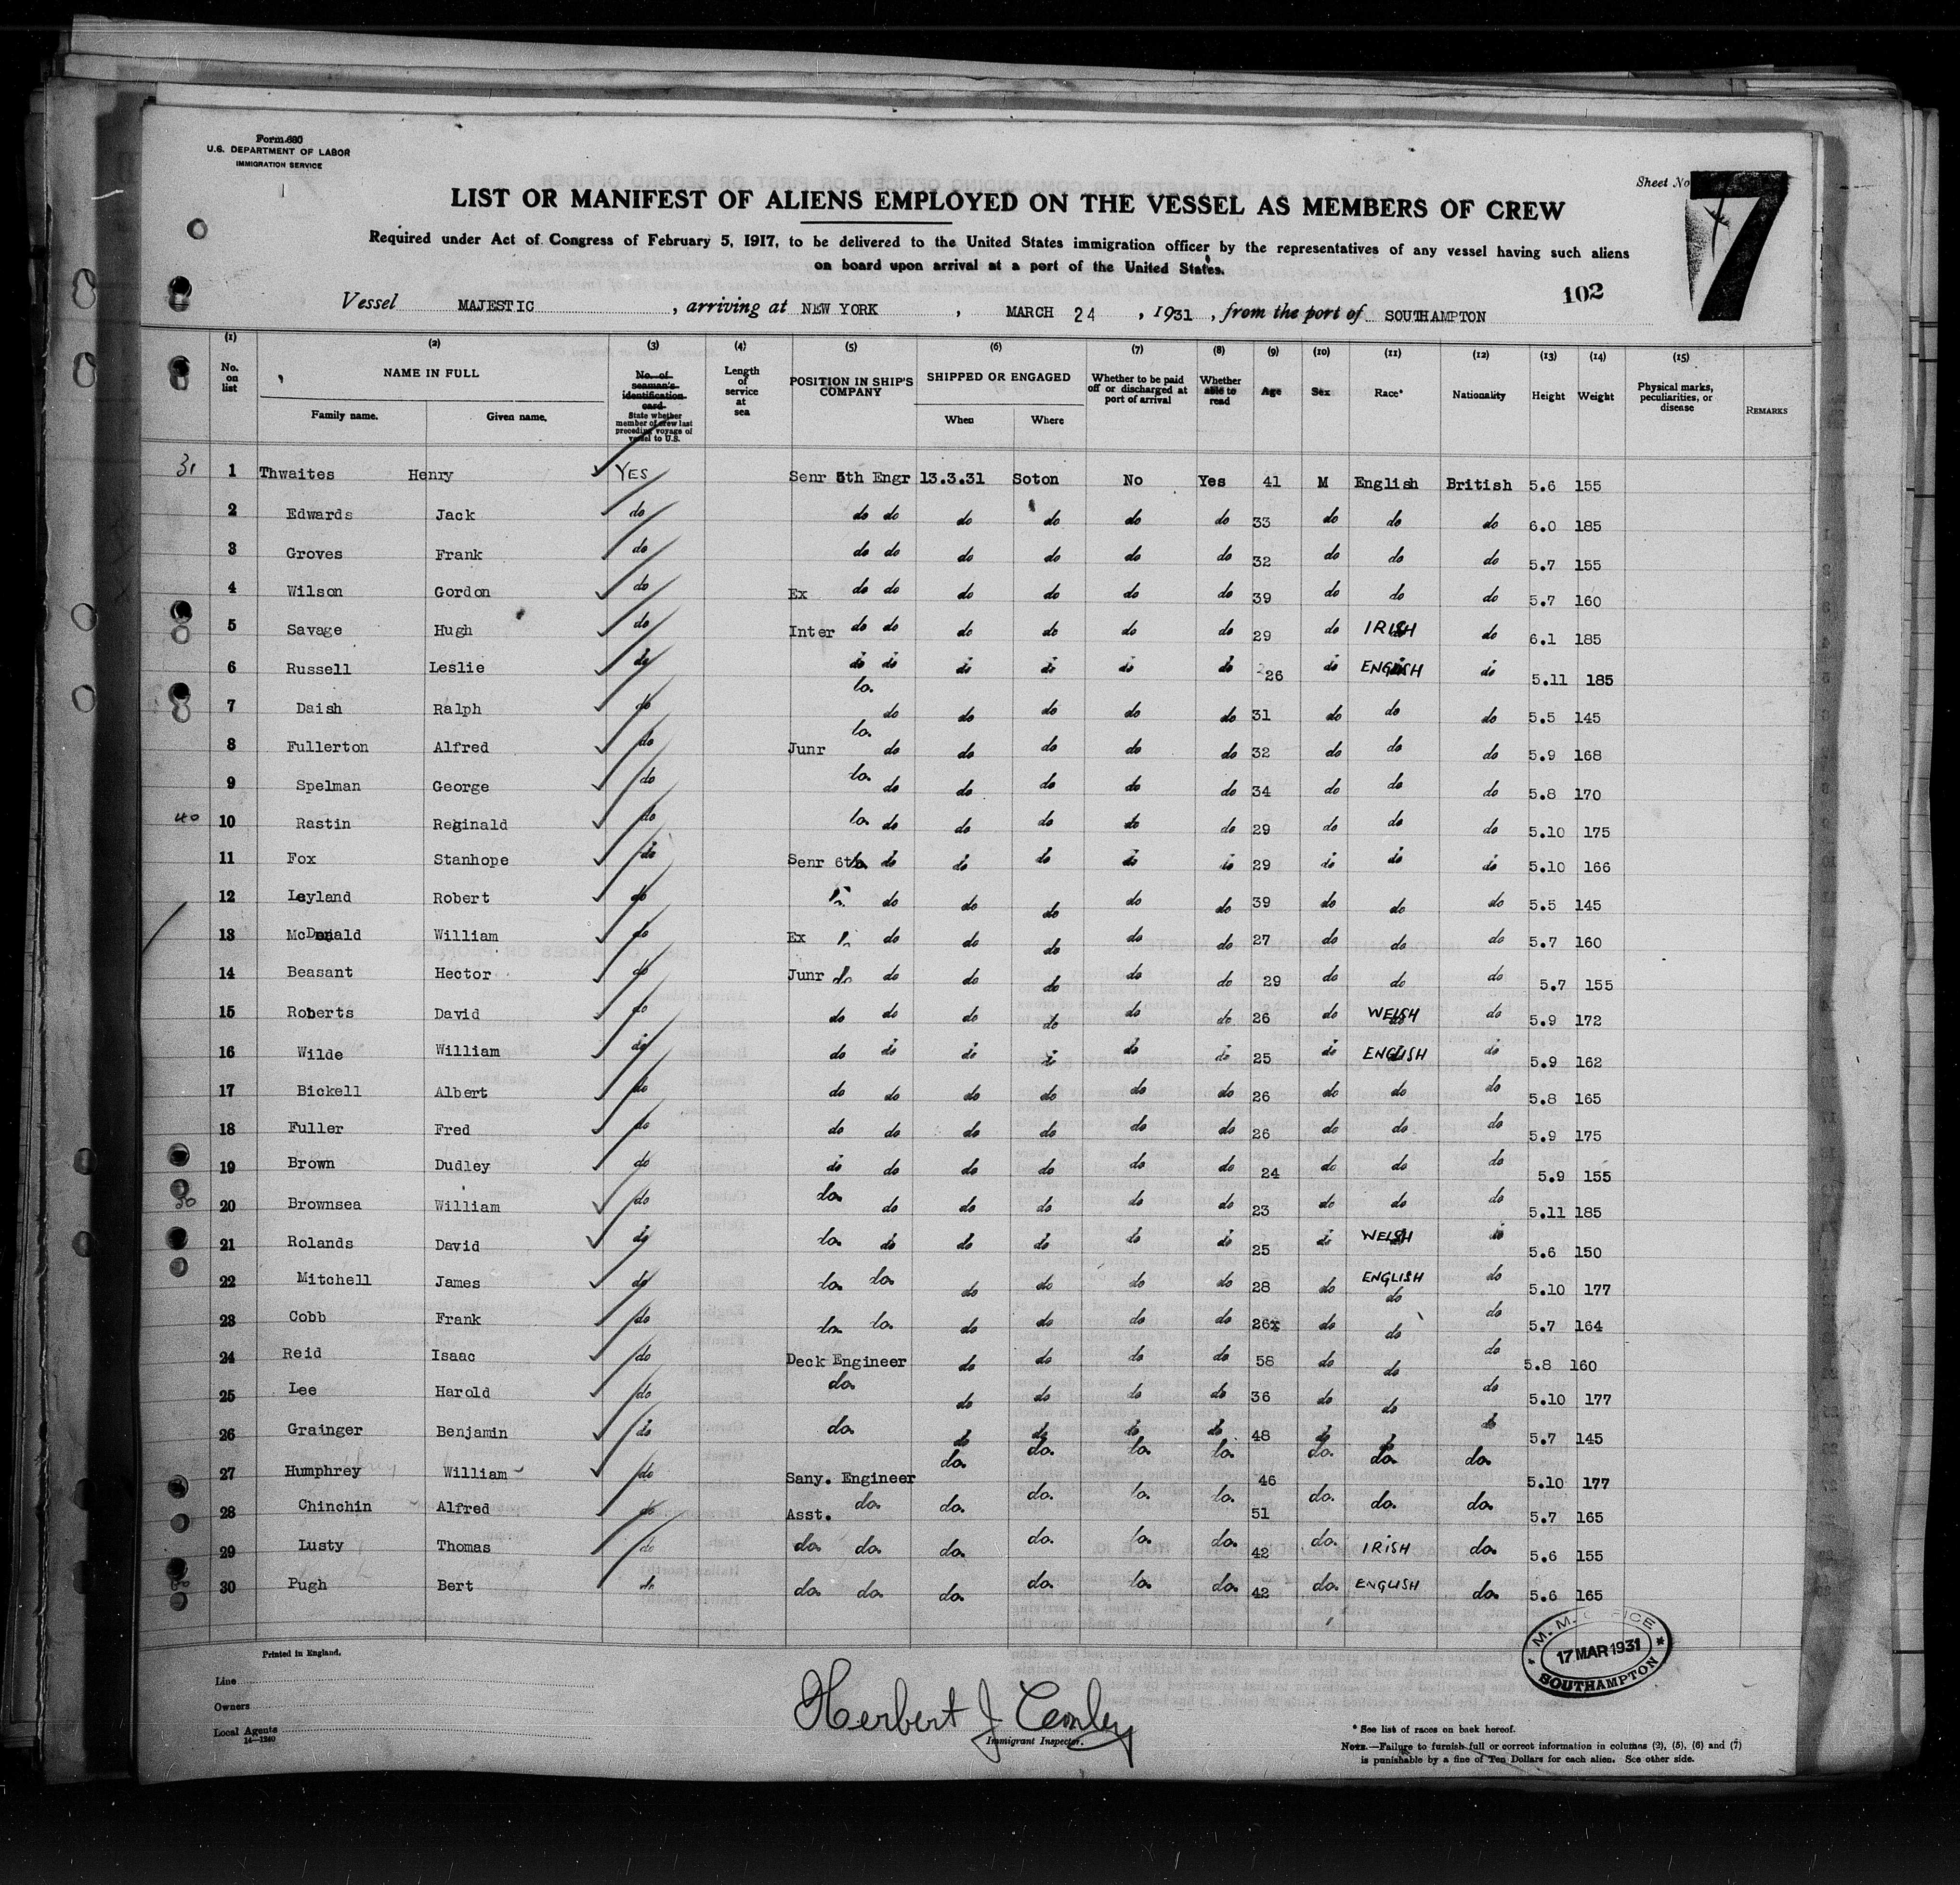 Form 680
U.S. DEPARTMENT OF LABOR
IMMIGRATION SERVICE
Sheet No 7
LIST OR MANIFEST OF ALIENS EMPLOYED ON THE VESSEL AS MEMBERS OF CREW
Required under Act of Congress of February 5, 1917, to be delivered to the United States immigration officer by the representatives of any vessel having such aliens
on board upon arrival at a port of the United States.
102
Vessel MAJESTIC , arriving at NEW YORK , MARCH 24 , 1931 , from the port of SOUTHAMPTON
(1) (2) (3) (4) (5) (6) (7) (8) (9) (10) (11) (12) (13) (14) (15)
No. on list NAME IN FULL Family name. Given name. No. of seaman's identification card State whether member of crew last preceding voyage of vessel to U.S. Length of service at sea POSITION IN SHIP'S COMPANY SHIPPED OR ENGAGED When Where Whether to be paid off or discharged at port of arrival Whether able to read Age Sex Race* Nationality Height Weight Physical marks, peculiarities, or disease REMARKS
31 1 Thwaites Henry YES Senr 5th Engr 13.3.31 Soton No Yes 41 M English British 5.6 155
2 Edwards Jack do do do do do do do 33 do do do 6.0 185
3 Groves Frank do do do do do do do 32 do do do 5.7 155
4 Wilson Gordon do Ex do do do do do do 39 do do do 5.7 160
5 Savage Hugh do Inter do do do do do do 29 do IRISH do 6.1 185
6 Russell Leslie do do do do do do do 26 do ENGLISH do 5.11 185
7 Daish Ralph do do. do do do do do 31 do do do 5.5 145
8 Fullerton Alfred do Junr do. do do do do do 32 do do do 5.9 168
9 Spelman George do do. do do do do do 34 do do do 5.8 170
40 10 Rastin Reginald do do. do do do do do 29 do do do 5.10 175
11 Fox Stanhope do Senr 6th do do do do do 29 do do do 5.10 166
12 Leyland Robert do do do do do do 39 do do do 5.5 145
13 McDonald William do Ex do do do do do 27 do do do 5.7 160
14 Beasant Hector do Junr do do do do do do 29 do do do 5.7 155
15 Roberts David do do do do do do do 26 do WELSH do 5.9 172
16 Wilde William do do do do do do do 25 do ENGLISH do 5.9 162
17 Bickell Albert do do do do do do do 26 do do do 5.8 165
18 Fuller Fred do do do do do do do 26 do do do 5.9 175
19 Brown Dudley do do do do do do do 24 do do do 5.9 155
50 20 Brownsea William do do. do do do do do 23 do do do 5.11 185
21 Rolands David do do. do do do do do 25 do WELSH do 5.6 150
22 Mitchell James do do. do. do do do do 28 do ENGLISH do do 5.10 177
23 Cobb Frank do do. do. do do do do 26x do do do 5.7 164
24 Reid Isaac do Deck Engineer do do do do 58 do do do 5.8 160
25 Lee Harold do do. do do do do 36 do do do 5.10 177
26 Grainger Benjamin do do. do do do do 48 do do do 5.7 145
27 Humphrey William do Sany. Engineer do. do. do. do. 46 do. do. do. 5.10 177
28 Chinchin Alfred do Asst. do. do. do. do. do. 51 do. do. do. 5.7 165
29 Lusty Thomas do do. do. do. do. do. do. 42 do. IRISH do. 5.6 155
60 30 Pugh Bert do do. do. do. do. do. do. 42 do. ENGLISH do. 5.6 165
M. M. OFFICE
17 MAR 1931
SOUTHAMPTON
Printed in England.
Line
Owners
Local Agents
14—1240
Herbert J
Immigrant Inspector.
* See list of races on back hereof.
NOTE.—Failure to furnish full or correct information in columns (2), (5), (6) and (7)
is punishable by a fine of Ten Dollars for each alien. See other side.